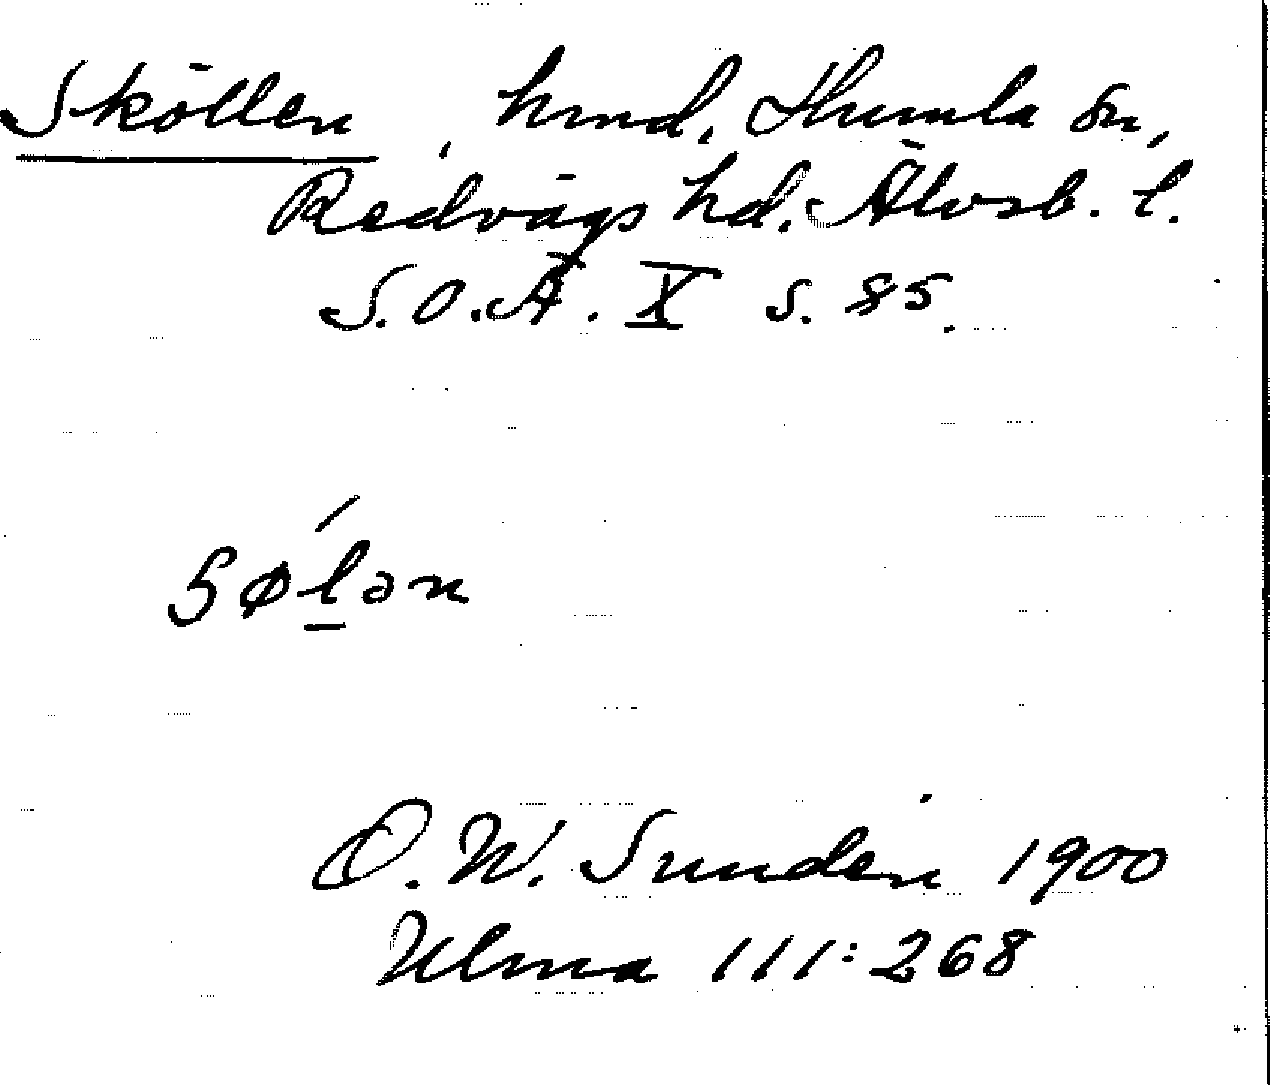 Sköllen, hmd, Humla sn,
Redvägs hd. Älvsb. l.
S.O.Ä. X s. 85.
Sø´l̠ən
D. W. Sundén 1900
Ulma 111:268